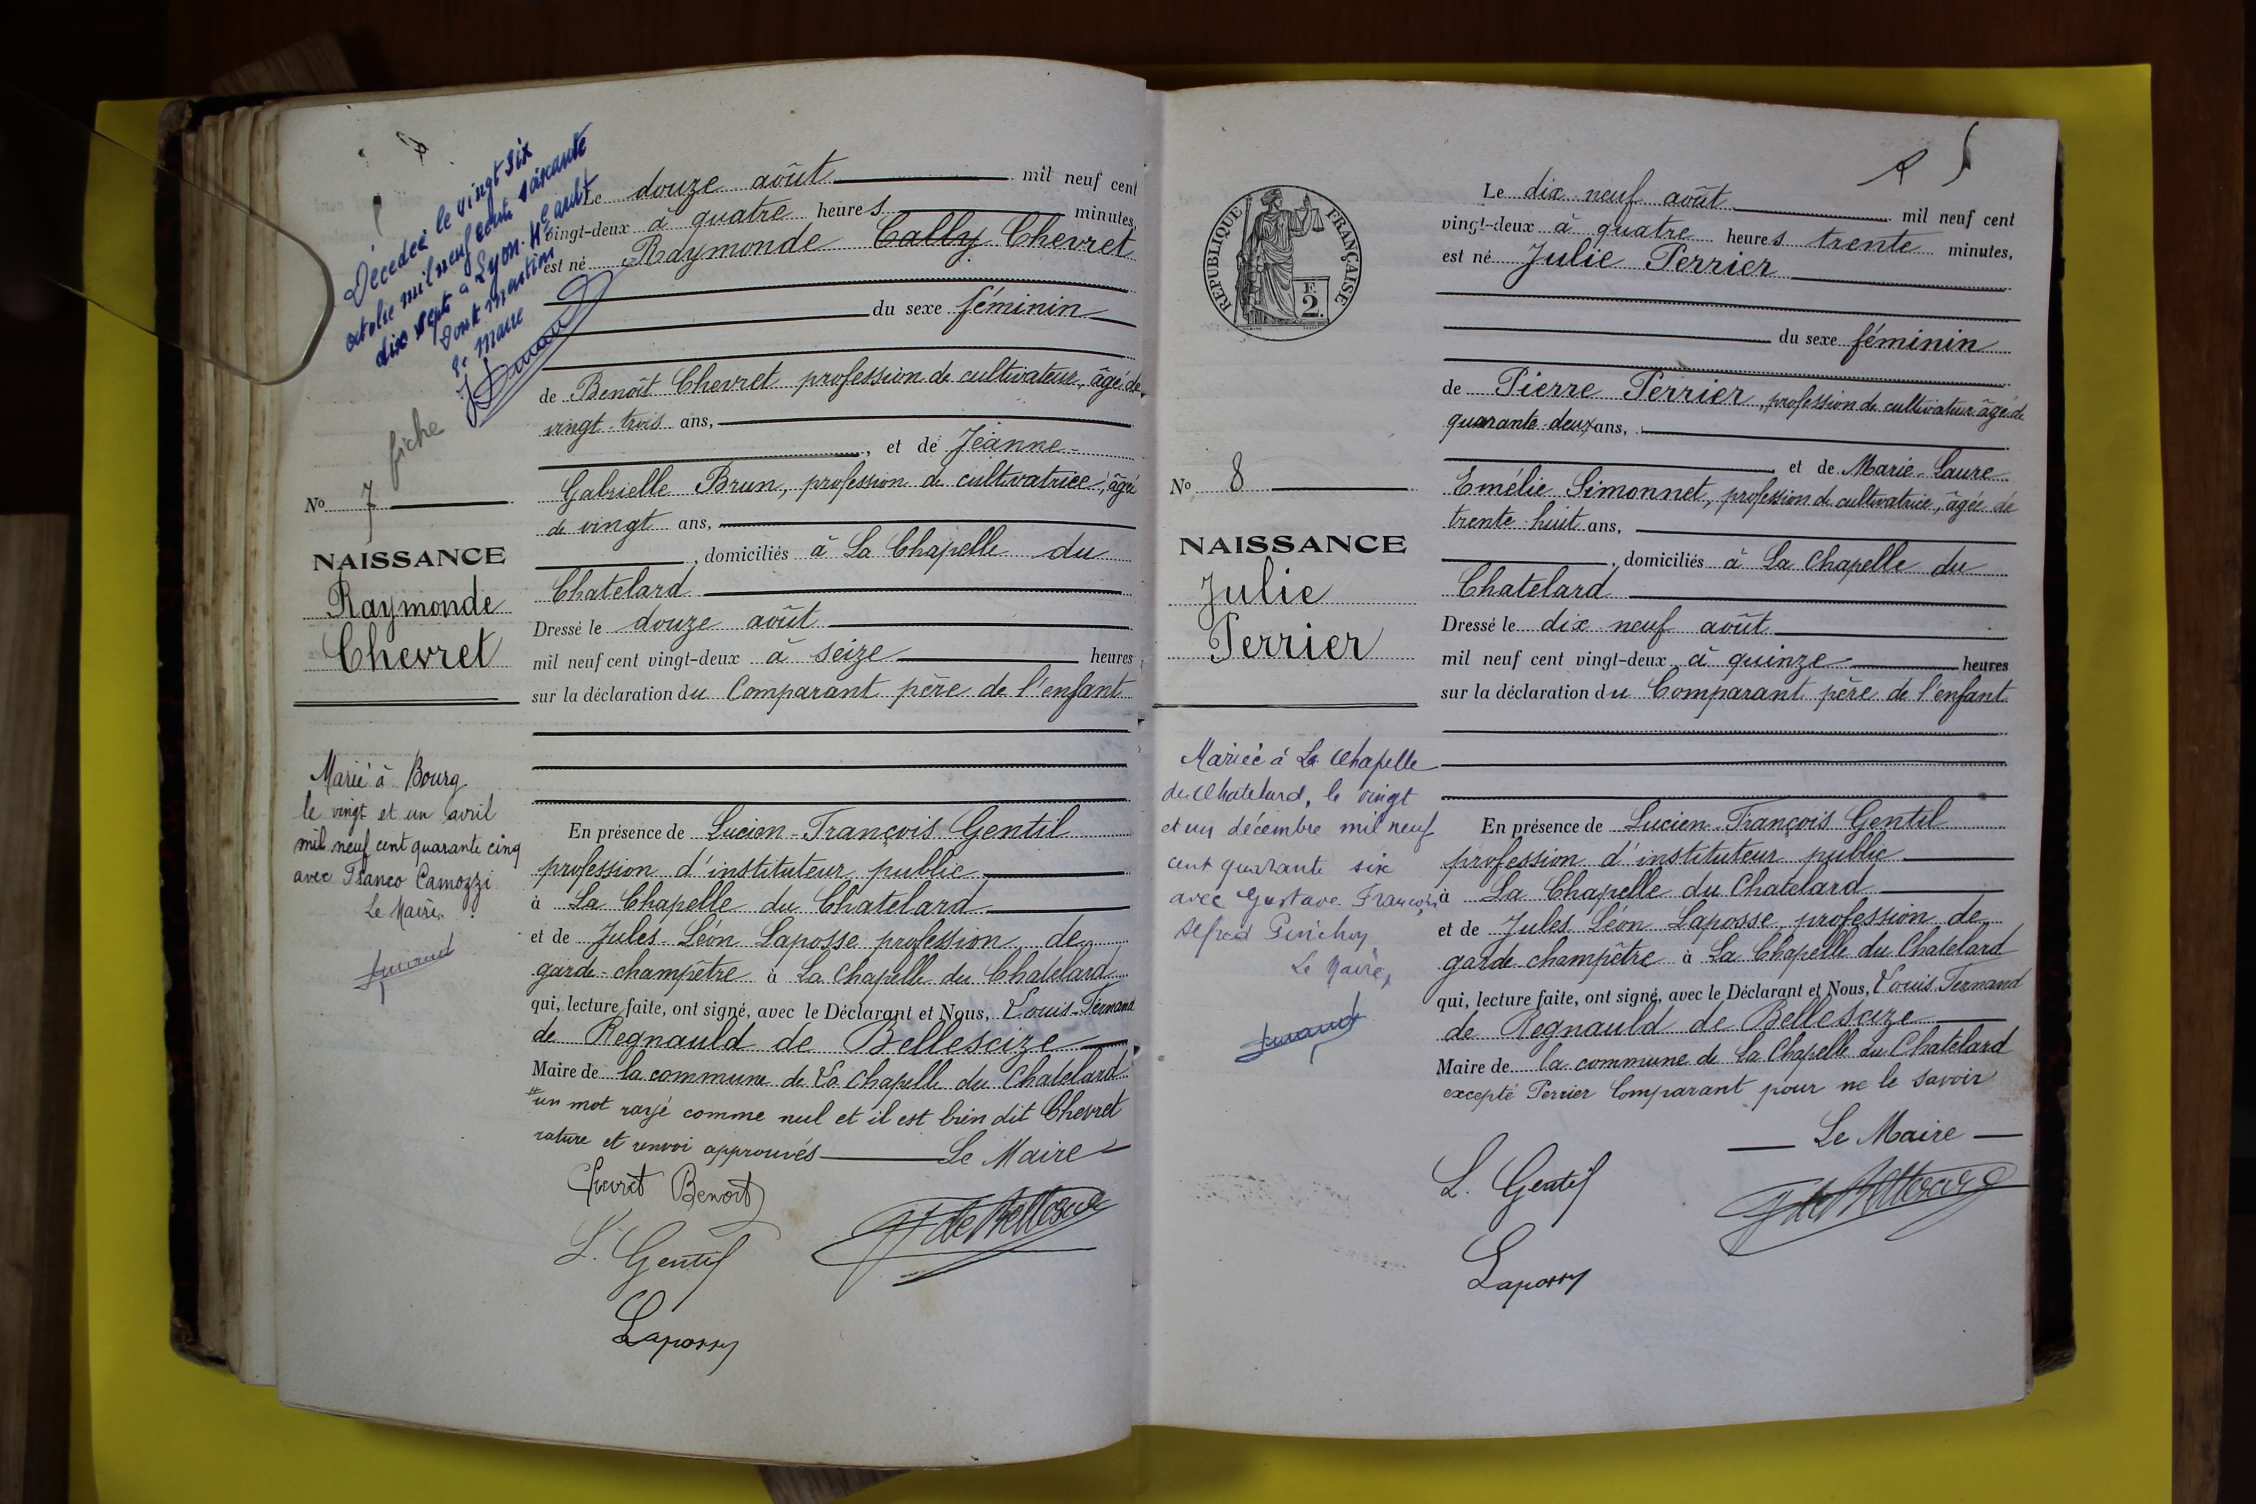 Décédée le vingt six
octobre mil neuf cent soixante
dix sept à Lyon
Dont mention
Le Maire
fiche
No 7
NAISSANCE
Raymonde
Chevret
Marié à Bourg
le vingt et un avril
mil neuf cent quarante cinq
avec Franco Camozzi
Le Maire
Le douze août mil neuf cent
vingt-deux à quatre heures minutes,
est né Raymonde Cally Chevret
du sexe féminin
de Benoît Chevret profession de cultivateur, âgé de
vingt-trois ans,
, et de Jeanne-
Gabrielle Brun, profession de cultivatrice, âgé
de vingt ans,
, domiciliés à La Chapelle du
Chatelard
Dressé le douze août
mil neuf cent vingt-deux à seize heures
sur la déclaration du Comparant père de l'enfant
En présence de Lucien-François Gentil
profession d'instituteur public
à La Chapelle du Chatelard
et de Jules Léon Laposse profession de
garde-champêtre à La Chapelle du Chatelard
qui, lecture faite, ont signé, avec le Déclarant et Nous, Louis-Fernand
de Regnauld de Bellescize
Maire de la commune de La Chapelle du Chatelard
un mot rayé comme nul et il est bien dit Chevret
rature et renvoi approuvés Le Maire
Chevret Benoît
L. Gentil
F de Bellescize
Laposse
RÉPUBLIQUE FRANÇAISE
F.
2.
No 8
NAISSANCE
Julie
Perrier
Mariée à La Chapelle
du Chatelard, le vingt
et un décembre mil neuf
cent quarante six
avec Gustave François
Alfred
Le Maire,
Le dix neuf août mil neuf cent
vingt-deux à quatre heures trente minutes,
est né Julie Perrier
du sexe féminin
de Pierre Perrier, profession de cultivateur âgé de
quarante-deux ans,
et de Marie-Laure
Emélie Simonnet, profession de cultivatrice, âgée de
trente-huit ans,
, domiciliés à La Chapelle du
Chatelard
Dressé le dix neuf août
mil neuf cent vingt-deux à quinze heures
sur la déclaration du Comparant père de l'enfant
En présence de Lucien-François Gentil
profession d'instituteur public
à La Chapelle du Chatelard
et de Jules Léon Laposse, profession de
garde-champêtre à La Chapelle du Chatelard
qui, lecture faite, ont signé, avec le Déclarant et Nous, Louis Fernand
de Regnauld de Bellescize
Maire de la commune de La Chapelle du Chatelard
excepté Perrier Comparant pour ne le savoir
Le Maire
L. Gentil
F de Bellescize
Laposse